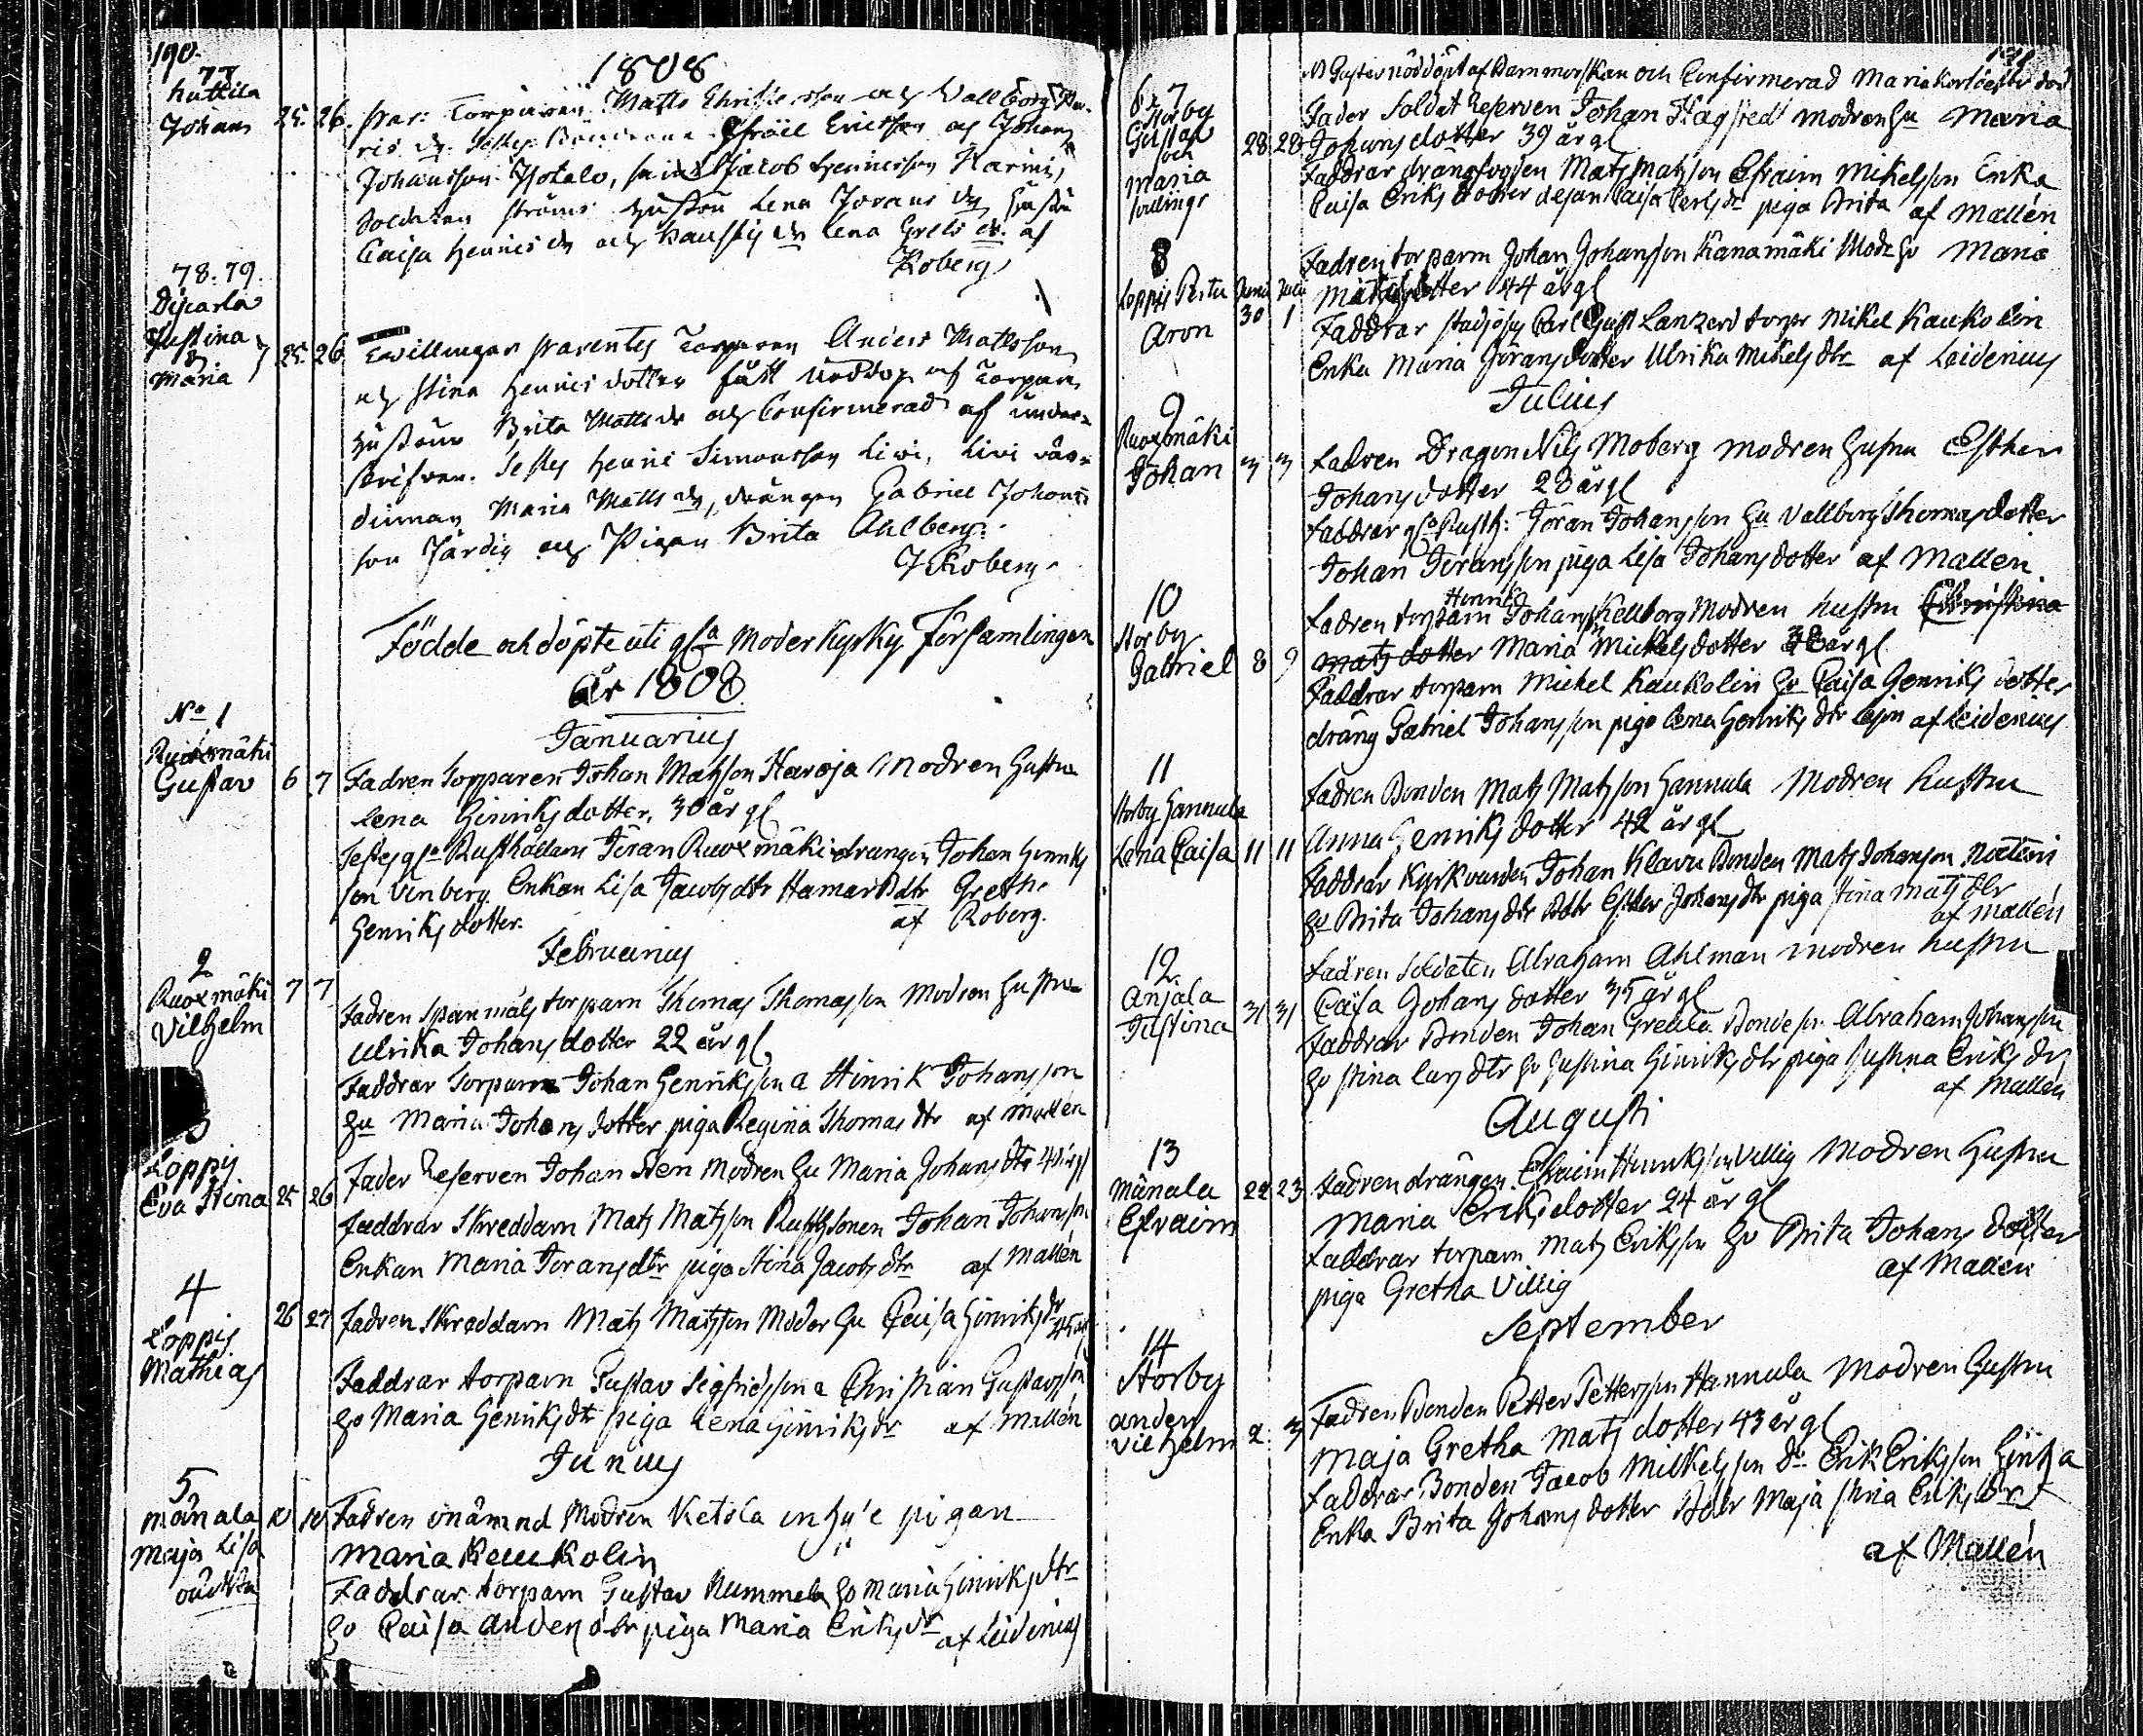 190.
1808
77
Huttila
Johan
25. 26.
par: Torparen Matts Christersson och Vallborg
Israel Ericsson och Johan
Johansson Hotalo, Jacob Hennicsson Harmi,
Soldaten Ströms hustru Lena Jorans dr,
Caisa Hennics dr och Lena Grels dr. af
Roberg
78. 79.
Justina
&
Maria
25. 26.
Twillingar parentes Torparen Anders Mattsson
och Stina Hennics dotter fått nöddop af Torpare
hustrun Brita Matts dr och Confirmerad af under-
skrifven. Testes Henric Simonsson Liwi, Livi vär-
dinnan Maria Matts dr, drängen Gabriel Johans
son Järdig och Pigan Brita Ahlberg.
J Roberg.
Födde och döpte uti gla Moderkyrky Församlingen
År 1808
Januarius
No 1
Ruoxmäki
Gustav
6 7
Fadren Torparen Johan Matsson Haroja Modren hustru
Lena Hinriks dotter, 30 år gl
Testes gla Rusthållarn Jöran Ruoxmäki drängen Johan Henriks
son Vinberg Enkan Lisa Jacobs dtr Hamar Bdtr Gretha
Henriks dotter.
af Roberg.
Februarius
2
Ruoxmäki
Vilhelm
7 7
Fadren Spanmåls torparn Thomas Thomasson Modren hustru
Ulrika Johans dotter 22 år gl,
Faddrar Torparn Johan Henriksson a Hinrik Johansson
hu Maria Johans dotter piga Regina Thomas dtr af Mallen
3
Loppis
Eva Stina
25 26
Fader Reserven Johan Sten Modren hu Maria Johans dtr
Faddrar Skreddarn Mats Matsson Rusthsonen Johan Johansson
Enkan Maria Jorans dtr piga Stina Jacobs dtr af Mallén
4
Loppis
Mathias
26 27
Fadren Skreddarn Mats Matsson Moder hu Caisa Hinriks dr
45 år
Faddrar torparn Gustav Sigfridsson a Christian Gustavsson
ho Maria Henriks dtr piga Lena Hinriks dr af Mallén
Junius
5
Månala
Maja Lisa
oäkta
Fadren onämnd Modren Ketola inhy'e pigan
Maria Kaukolin
Faddrar torparn Gustav Nummela ho Maria Hinriks dtr
ho Caisa Anders dtr piga Maria Eriks dr af Leidenius
191
N Gustav nöddöpt af Barnmorskan och Confirmerad Maria
6. 7
Storby
Gustav
och
Maria
tvilling
28 28
Fader Soldat Reserven Johan Hagsted modren hu Maria
Johans dotter 39 år gl
Faddrar drangfogden Mats Matsson Efraim Mikelsson Enka
Caisa Eriks dotter piga Brita af Mallén
8
Loppis Pertu
Aron
Junii Julii
30 1
Fadren torparn Johan Johansson Kanamäki Modr ho Maria
Mats dotter 44 år gl
Faddrar Carl Gust Lanzerd torpr Mikel Kaukolin
Enka Maria Görans dotter Ulrika Mikels dtr af Leidenius
Julius
9
Ruoxmäki
Johan
3 3
Fadren Dragon Nils Moberg modren hustru Esther
Johans dotter 28 år gl
Faddrar gla Rusth: Jöran Johansson hu Vallborg Thomas dotter
Johan Joransson piga Lisa Johans dotter af Mallen
10
Storby
Gabriel
8 9
Hinrik
Fadren torparn Johansson Kellborg Modren hustru Christina
Mats dotter Maria Mickels dotter 38 år gl
Faddrar torparn Mickel Kaukolin ho Caisa Henriks dotter
dräng Gabriel Johansson piga Lena Henriks dtr af Leidenius
11
Storby Hannula
Lena Caisa
11 11
Fadren Bonden Mats Matsson Hannula Modren hustru
Anna Henriks dotter 42 år gl
Faddrar Kyrkvärden Johan Klavu Bonden Mats Johansson
ho Brita Johans dtr Bdtr Esther Johans dtr piga Stina Mats dtr
af Mallén
12
Anjala
Justina
31 31
Fadren Soldaten Abraham Ahlman modren hustru
Caisa Johans dotter 35 år gl
Faddrar Bonden Johan Greula Bondeson Abraham Johansson
ho Stina Lars dtr ho Justina Hinriks dtr piga Justina Eriks dr
af Mallén
Augusti
13
Månala
Efraim
22 23
Fadren drängen Efraim Hinriksson Villig Modren hustru
Maria Eriks dotter 24 år gl
Faddrar torparn Mats Eriksson ho Brita Johans dotter
piga Gretha Villig
af Mallén
September
14
Storby
Anders
Vilhelm
2 3
Fadren Bonden Petter Pettersson Hannula Modren hustru
Maja Gretha Mats dotter 43 år gl
Faddrar Bonden Jacob Mikelsson do Erik Eriksson
Enka Brita Johans dotter Bdtr Maja Stina Eriks dr
af Mallén